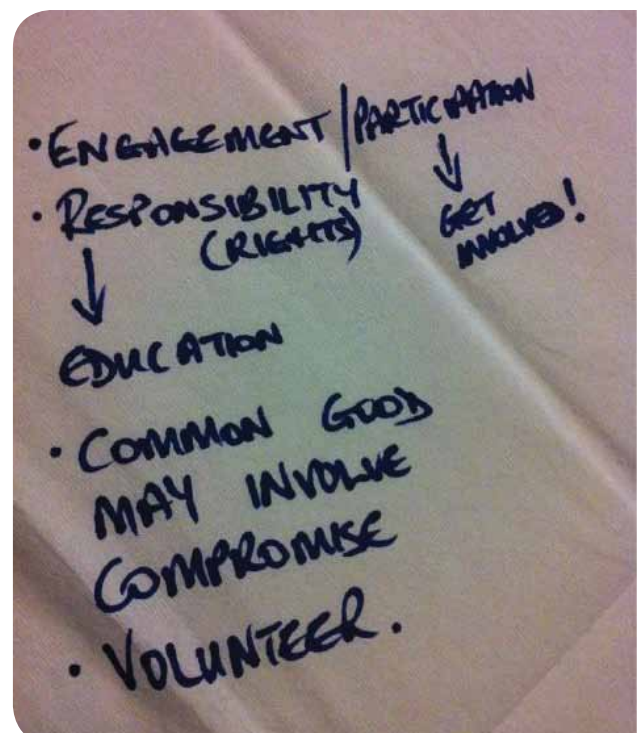 • ENGAGEMENT / PARTICIPATION
↓
GET
INVOLVED!
• RESPONSIBILITY
(RIGHTS)
↓
EDUCATION
• COMMON GOOD
MAY INVOLVE
COMPROMISE
• VOLUNTEER.